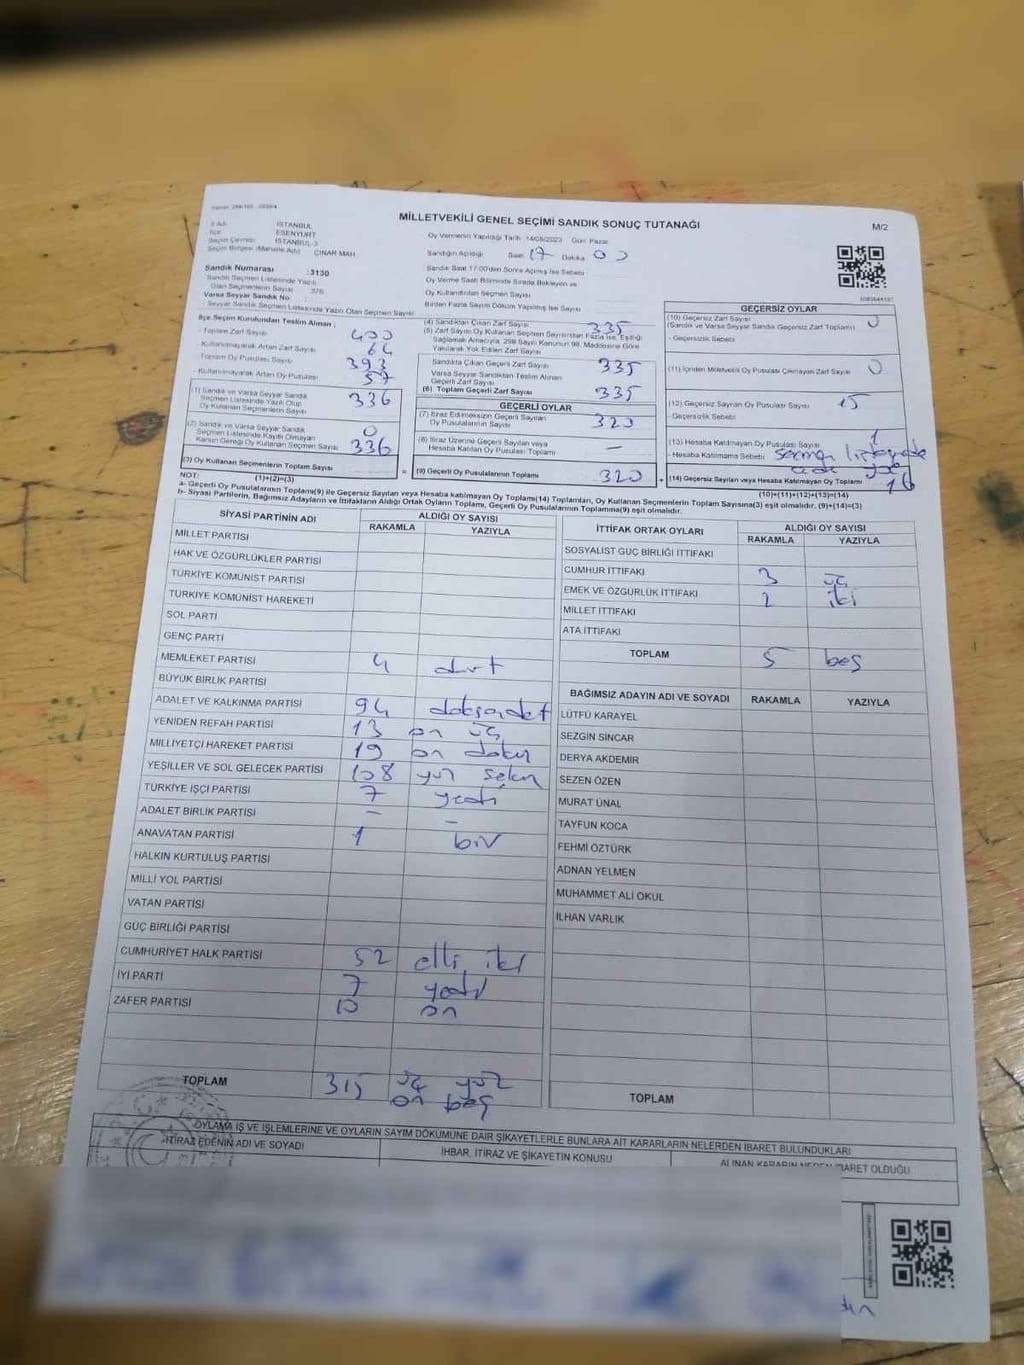 MİLLETVEKİLİ GENEL SEÇİMİ SANDIK SONUÇ TUTANAĞI
M/2
İl Adı : İSTANBUL
İlçe : ESENYURT
Seçim Çevresi : İSTANBUL-3
Seçim Bölgesi (Mahalle Adı) : ÇINAR MAH
Oy Vermenin Yapıldığı Tarih 14/05/2023 Gün Pazar
Sandığın Açıldığı Saat 17 Dakika 00
Sandık Saat 17:00'den Sonra Açılmış İse Sebebi
Oy Verme Saati Bitiminde Sırada Bekleyen ve
Oy Kullandırılan Seçmen Sayısı
Birden Fazla Sayım Döküm Yapılmış İse Sayısı
Sandık Numarası :3130
Sandık Seçmen Listesinde Yazılı
Olan Seçmenlerin Sayısı : 376
Varsa Seyyar Sandık No :
- Seyyar Sandık Seçmen Listesinde Yazılı Olan Seçmen Sayısı
İlçe Seçim Kurulundan Teslim Alınan ;
- Toplam Zarf Sayısı 400
- Kullanılmayarak Artan Zarf Sayısı 64
- Toplam Oy Pusulası Sayısı 393
- Kullanılmayarak Artan Oy Pusulası 57
(1) Sandık ve Varsa Seyyar Sandık
Seçmen Listesinde Yazılı Olup
Oy Kullanan Seçmenlerin Sayısı 336
(2) Sandık ve Varsa Seyyar Sandık
Seçmen Listesinde Kayıtlı Olmayan
Kanun Gereği Oy Kullanan Seçmen Sayısı 0
(3) Oy Kullanan Seçmenlerin Toplam Sayısı 336
(1)+(2)=(3)
(4) Sandıktan Çıkan Zarf Sayısı 335
(5) Zarf Sayısı Oy Kullanan Seçmen Sayısından Fazla İse, Eşitliği
Sağlamak Amacıyla, 298 Sayılı Kanunun 98. Maddesine Göre
Yakılarak Yok Edilen Zarf Sayısı
Sandıkta Çıkan Geçerli Zarf Sayısı 335
Varsa Seyyar Sandıktan Teslim Alınan
Geçerli Zarf Sayısı
(6) Toplam Geçerli Zarf Sayısı 335
GEÇERLİ OYLAR
(7) İtiraz Edilmeksizin Geçerli Sayılan
Oy Pusulalarının Sayısı 320
(8) İtiraz Üzerine Geçerli Sayılan veya
Hesaba Katılan Oy Pusulası Toplamı —
= (9) Geçerli Oy Pusulalarının Toplamı 320
GEÇERSİZ OYLAR
(10) Geçersiz Zarf Sayısı 0
(Sandık ve Varsa Seyyar Sandık Geçersiz Zarf Toplamı)
- Geçersizlik Sebebi
(11) İçinden Milletvekili Oy Pusulası Çıkmayan Zarf Sayısı 0
(12) Geçersiz Sayılan Oy Pusulası Sayısı 15
- Geçersizlik Sebebi
(13) Hesaba Katılmayan Oy Pusulası Sayısı 1
- Hesaba Katılmama Sebebi seçmen listesinde
adı yok
+ (14) Geçersiz Sayılan veya Hesaba Katılmayan Oy Toplamı 16
(10)+(11)+(12)+(13)=(14)
NOT:
a- Geçerli Oy Pusulalarının Toplamı(9) ile Geçersiz Sayılan veya Hesaba katılmayan Oy Toplamı(14) Toplamları, Oy Kullanan Seçmenlerin Toplam Sayısına(3) eşit olmalıdır. (9)+(14)=(3)
b- Siyasi Partilerin, Bağımsız Adayların ve İttifakların Aldığı Ortak Oyların Toplamı, Geçerli Oy Pusulalarının Toplamına(9) eşit olmalıdır.
SİYASİ PARTİNİN ADI ALDIĞI OY SAYISI
RAKAMLA YAZIYLA
MİLLET PARTİSİ
HAK VE ÖZGÜRLÜKLER PARTİSİ
TÜRKİYE KOMÜNİST PARTİSİ
TÜRKİYE KOMÜNİST HAREKETİ
SOL PARTİ
GENÇ PARTİ
MEMLEKET PARTİSİ 4 dört
BÜYÜK BİRLİK PARTİSİ
ADALET VE KALKINMA PARTİSİ 94 doksandört
YENİDEN REFAH PARTİSİ 13 on üç
MİLLİYETÇİ HAREKET PARTİSİ 19 on dokuz
YEŞİLLER VE SOL GELECEK PARTİSİ 108 yüz sekiz
TÜRKİYE İŞÇİ PARTİSİ 7 yedi
ADALET BİRLİK PARTİSİ — —
ANAVATAN PARTİSİ 1 bir
HALKIN KURTULUŞ PARTİSİ
MİLLİ YOL PARTİSİ
VATAN PARTİSİ
GÜÇ BİRLİĞİ PARTİSİ
CUMHURİYET HALK PARTİSİ 52 elli iki
İYİ PARTİ 7 yedi
ZAFER PARTİSİ 10 on
TOPLAM 315 üç yüz
on beş
İTTİFAK ORTAK OYLARI ALDIĞI OY SAYISI
RAKAMLA YAZIYLA
SOSYALİST GÜÇ BİRLİĞİ İTTİFAKI
CUMHUR İTTİFAKI 3 üç
EMEK VE ÖZGÜRLÜK İTTİFAKI 2 iki
MİLLET İTTİFAKI
ATA İTTİFAKI
TOPLAM 5 beş
BAĞIMSIZ ADAYIN ADI VE SOYADI RAKAMLA YAZIYLA
LÜTFÜ KARAYEL
SEZGİN SİNCAR
DERYA AKDEMİR
SEZEN ÖZEN
MURAT ÜNAL
TAYFUN KOCA
FEHMİ ÖZTÜRK
ADNAN YELMEN
MUHAMMET ALİ OKUL
İLHAN VARLIK
TOPLAM
OYLAMA İŞ VE İŞLEMLERİNE VE OYLARIN SAYIM DÖKÜMÜNE DAİR ŞİKAYETLERLE BUNLARA AİT KARARLARIN NELERDEN İBARET BULUNDUKLARI
İTİRAZ EDENİN ADI VE SOYADI İHBAR, İTİRAZ VE ŞİKAYETİN KONUSU ALINAN KARARIN NEDEN İBARET OLDUĞU